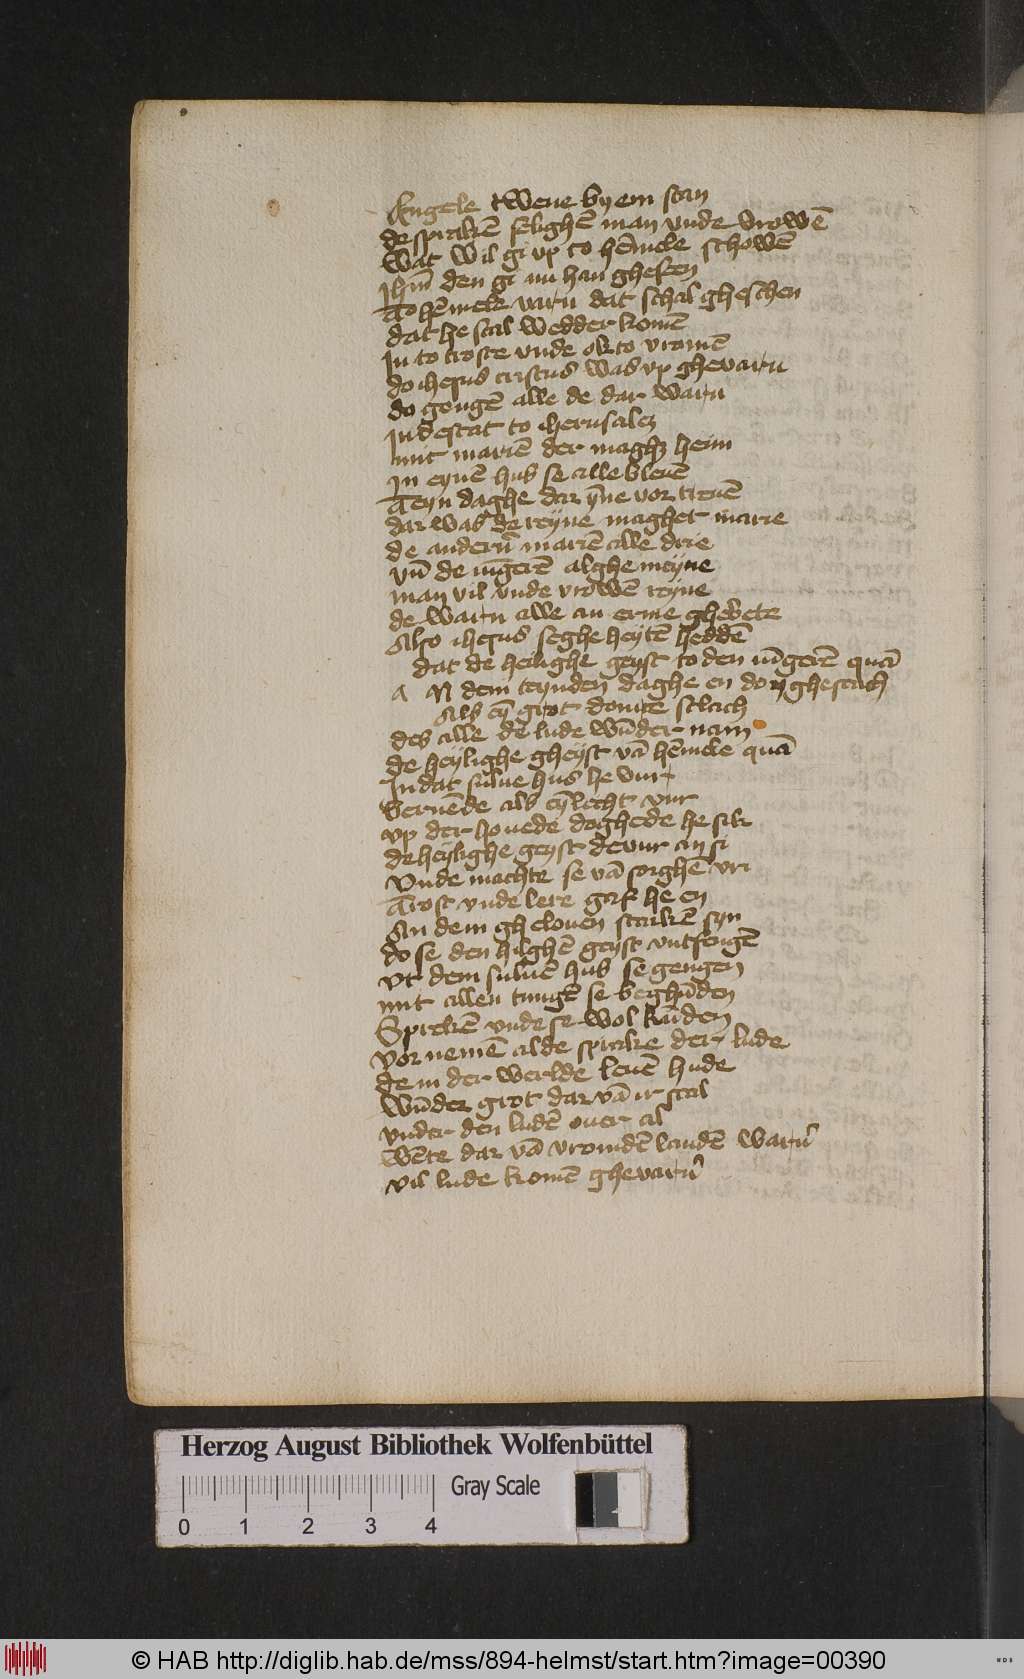 Engele twene by em stan
de sprakē selighē man vnde vrowē
wat wil gi vp to hēmele schowē
ihm̄ den gi nu han ghesen
To hēmele varn dat schal gheschen
dat he scal wedder komē
In to troste vnde ok to vromē
do ihesus cristus was vp ghevarn
do gongē alle de dar warn
In de stat to iherusalē
mit mariē der maghet heim
In eynē hus se alle bleuē
Teyn daghe dar ȳne vor dreuē
dar was de reyne maghet marie
de andern mariē alle drie
vn̄ de iūgerē alghemeyne
man vil vnde vrowē reyne
de warn alle an erme ghebete
Also ihesus seghe heytē heddē
dat de heilighe geyst to den iūgerē quā
A N dem teynden daghe en do ghescach
Als eȳ grot donre slach
des alle de lude wūder nam
de heylighe gheyst vā hēmele quā
In dat sulue hus he vur
Bernēde als eȳ lecht vur
vp der houede doghede he sik
de heylighe geyst de vur an si
Vnde machte se vā sorghē vri
Trost vnde lere gaf he en
An dem ghelouen starkē syn
do se den hilghē geyst vntfengē
vt dem suluē hus se gengen
mit allen tungē se beghūden
Sprekē vnde se wol kūden
vor nemē al de sprake der lude
de in der werlde leuē hude
wūder grot dar vā ir scal
vnder den ludē ouer al
wēte dar vā vromdē landē warn
vil lude komē ghevarn
Herzog August Bibliothek Wolfenbüttel
Gray Scale
0 1 2 3 4
© HAB http://diglib.hab.de/mss/894-helmst/start.htm?image=00390